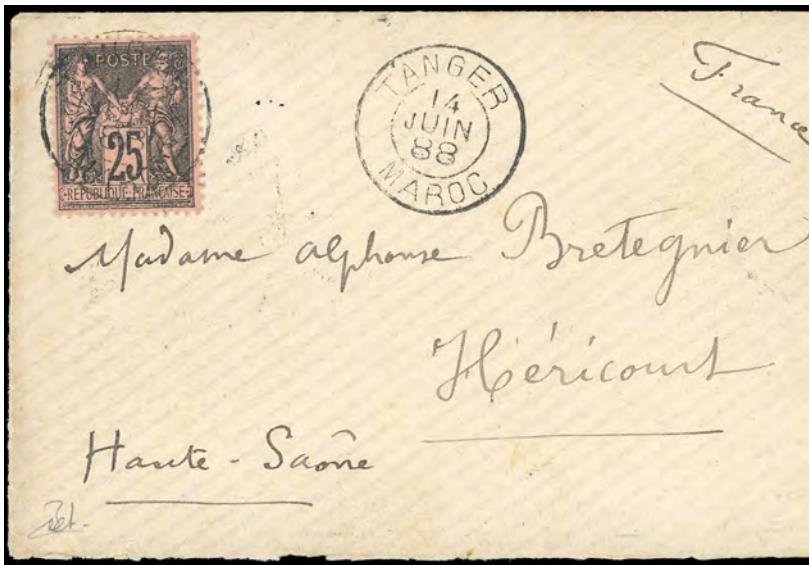 POSTE
25
REPUBLIQUE FRANÇAISE
TANGER
14
JUIN
88
MAROC
France
Madame Alphonse Bretegnier
Héricourt
Haute-Saône